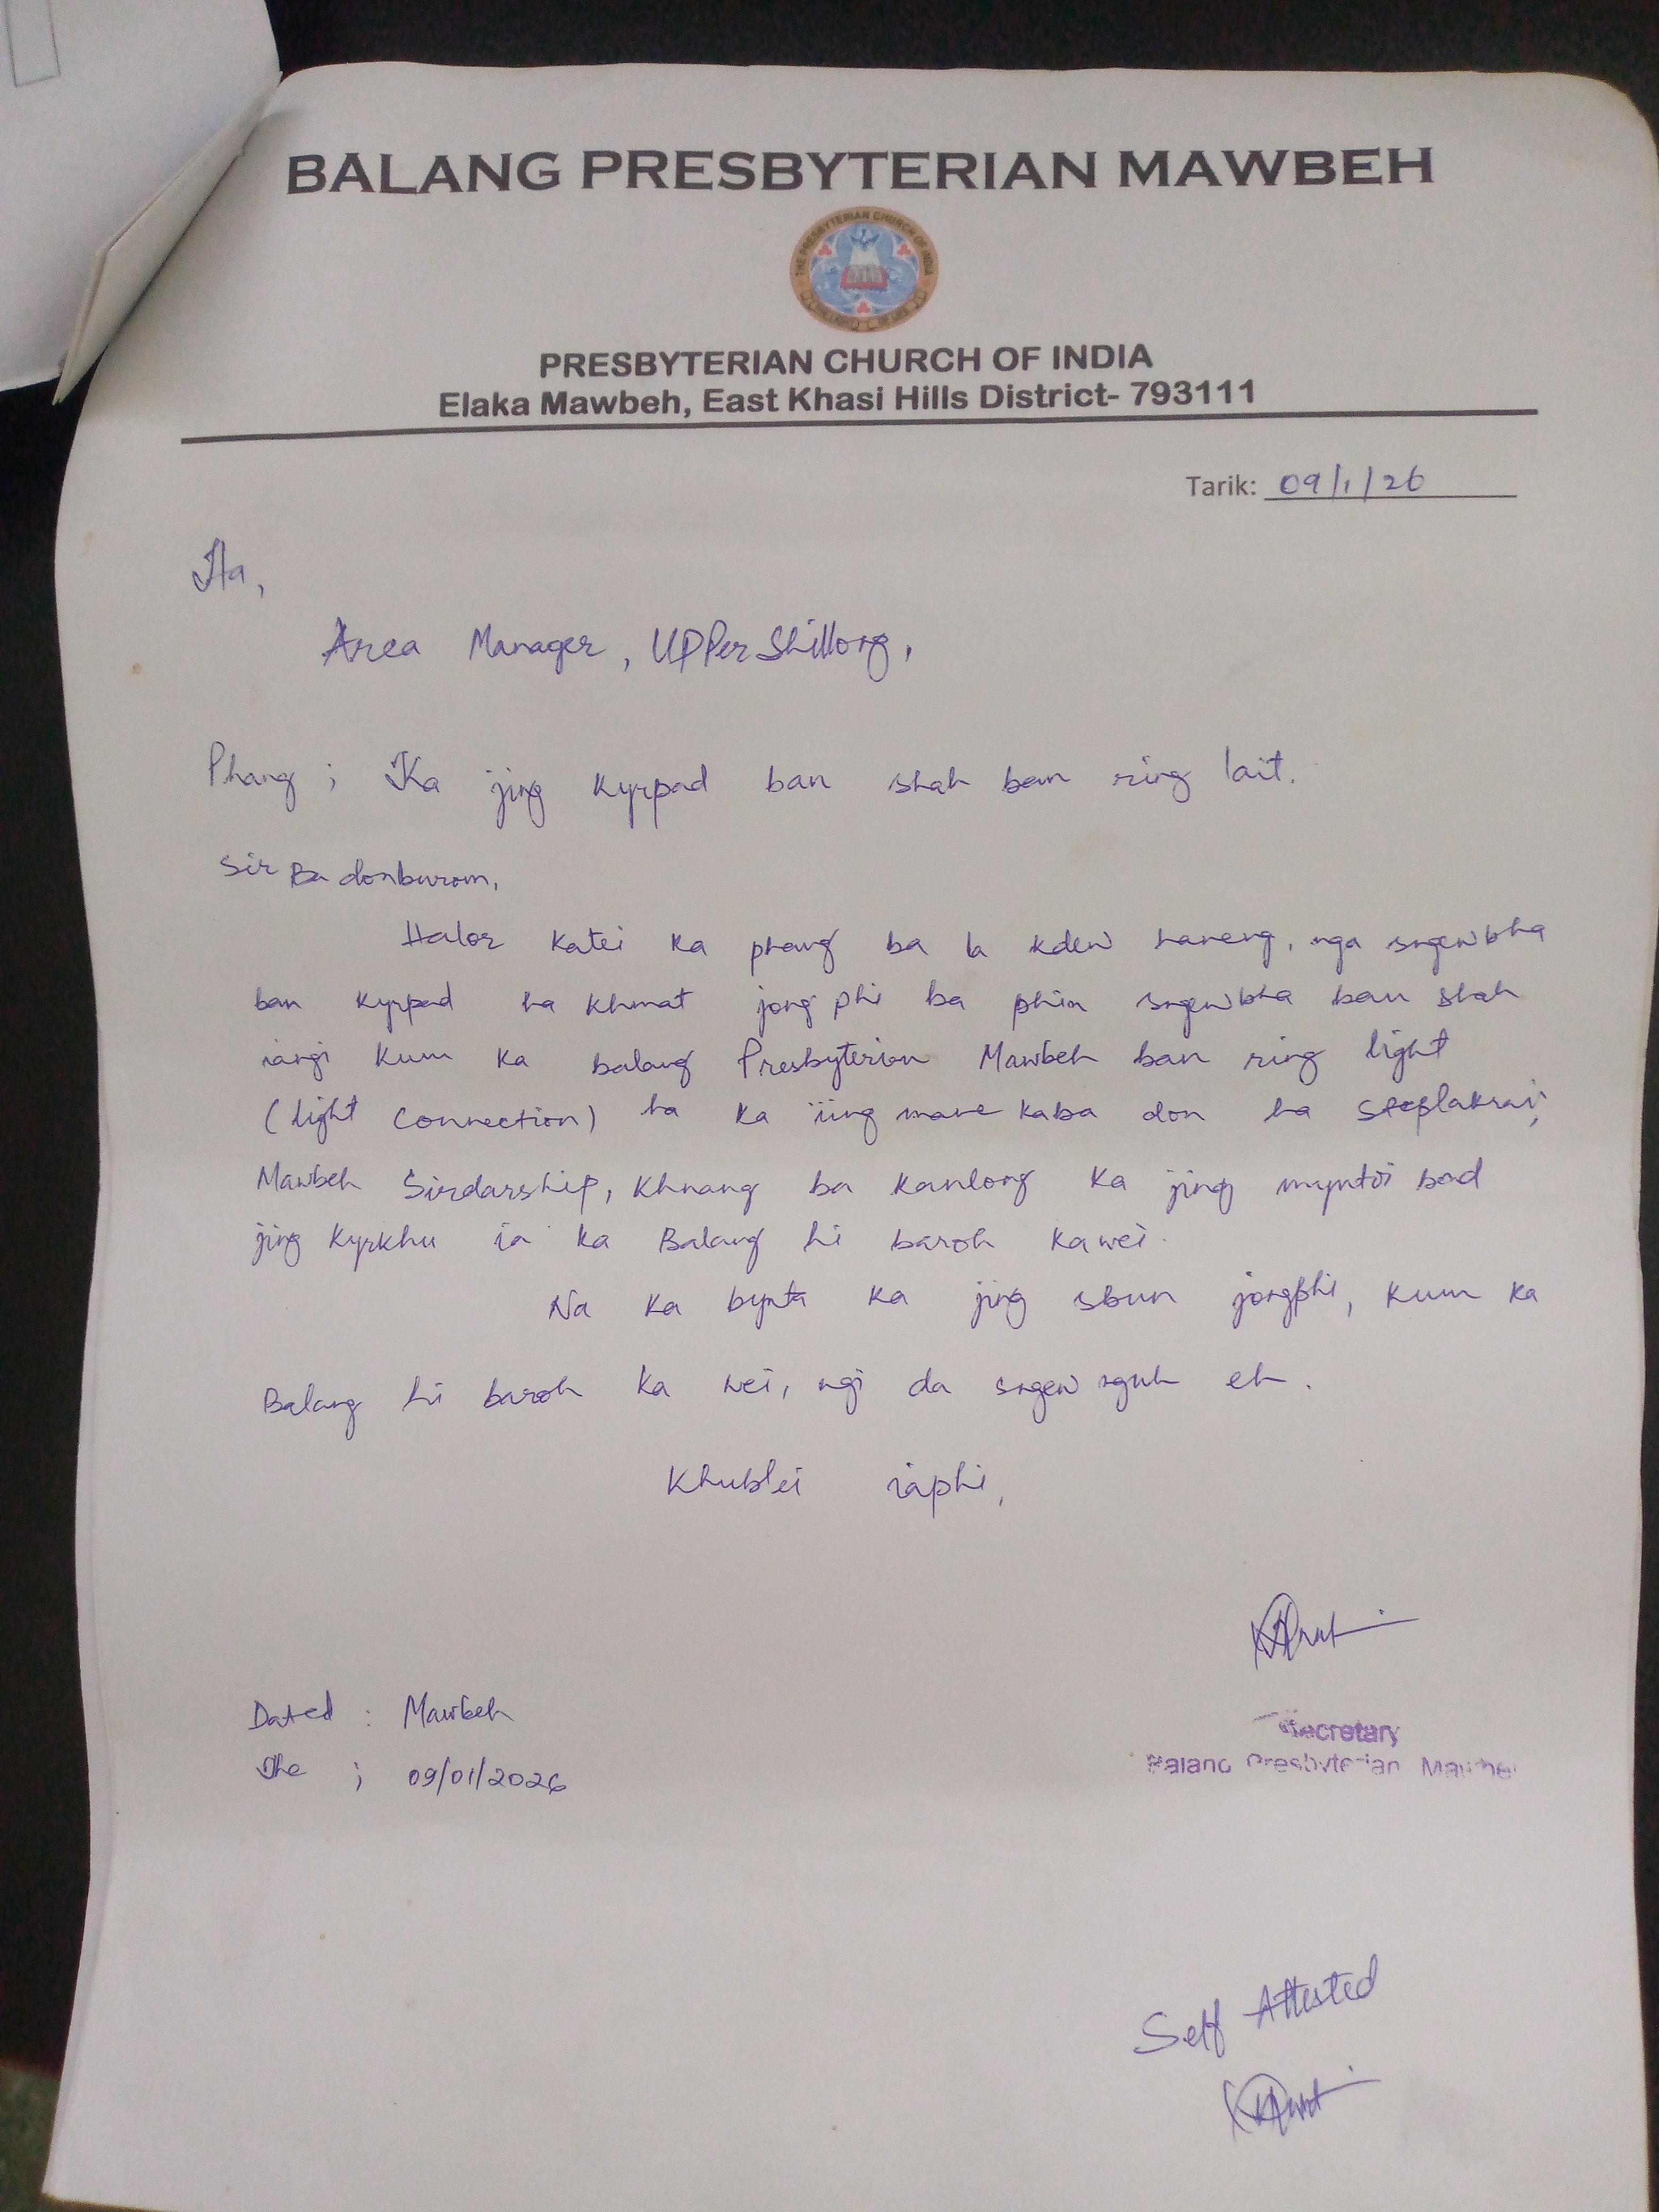 BALANG PRESBYTERIAN MAWBEH
THE PRESBYTERIAN CHURCH OF INDIA
PRESBYTERIAN CHURCH OF INDIA
Elaka Mawbeh, East Khasi Hills District- 793111
Tarik: 09/1/26
Ha,
Area Manager, UPPer Shillong,
Phang ; Ka jing kyrpad ban shah ban ring lait.
Sir Ba donburom,
Halor katei ka phang ba la kdew haneng, nga sngewbha
ban kyrpad ha khmat jong phi ba phin sngewbha ban shah
iangi kum ka balang Presbyterian Mawbeh ban ring light
(light connection) ha ka iing mane kaba don ha
Mawbeh Sirdarship, khnang ba kanlong ka jing myntoi bad
jing kyrkhu ia ka Balang hi baroh kawei.
Na ka bynta ka jing sbun jongphi, kum ka
Balang hi baroh ka wei, ngi da sngew nguh eh.
Khublei iaphi,
Dated : Mawbeh
The ; 09/01/2026
Secretary
Balang Presbyterian Mawbeh
Self Attested